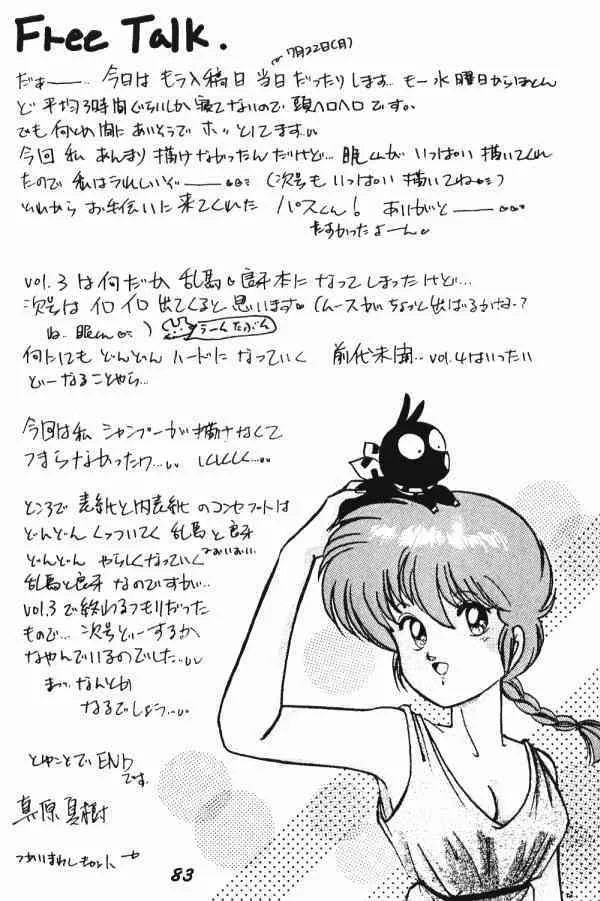 Free Talk.
7月22日(月)
だぁー‥ 今日は もう入稿日 当日だったりします‥ もー水曜日からほとん
ど 平均3時間ぐらいしか 寝てないので 頭ヘロヘロ です。
でも何とか間にあいそうで ホッとしてます‥
今回 私 あんまり描けなかったんだけど… 眠くんが いっぱい描いてくれ
たので 私はうれしいぞー (次号も いっぱい描いてね)
それから お手伝いに来てくれた パスくん! ありがとー
たすかったよーん
vol.3 は何だか 乱馬 良牙本になってしまったけど…
次号は イロイロ出てくると思います (ムースがちょっと出ばるかな?
ね 眠くん ) うーんたぶん
何にしても どんどん ハードになっていく 前代未聞‥ vol.4はいったい
どーなることやら…
今回は私 シャンプーが描けなくて
つまらなかったワ… しくしく…
ところで 表紙と内表紙のコンセプトは
どんどん くっついてく 乱馬と良牙
どんどん やらしくなっていく おいおい…
乱馬と良牙 なのですが…
vol.3で終わるつもりだった
もので… 次号どーするか
なやんでいるのでした…
まっ なんとか
なるでしょう…
とゆことで END
です.
真原真樹
83